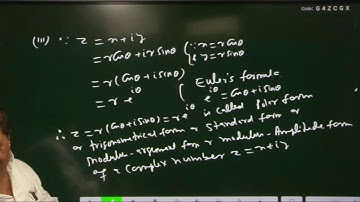 Code: G4ZCGX
(iii) ∵ z = x + iy
= r cosθ + i r sinθ { ∵ x = r cosθ
= r (cosθ + i sinθ) & y = r sinθ
= r e^{iθ} { Euler's formula
e^{iθ} = cosθ + i sinθ
∴ z = r(cosθ + i sinθ) = r e^{iθ} is called Polar form
or trigonometrical form or standard form or
modulus-argument form or modulus-Amplitude form
of a complex number z = x + iy